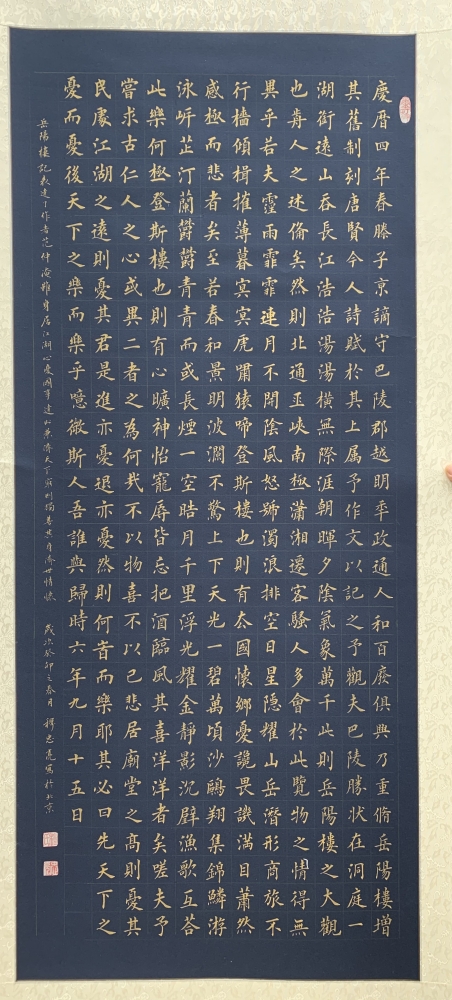 慶曆四年春滕子京謫守巴陵郡越明秊政通人和百廢俱興乃重脩岳陽樓增
其舊制刻唐賢今人詩賦於其上属予作文以記之予觀夫巴陵勝狀在洞庭一
湖銜遠山吞長江浩浩湯湯橫無際涯朝暉夕陰氣象萬千此則岳陽樓之大觀
也歬人之述俻矣然則北通巫峽南極瀟湘遷客騷人多會於此覽物之情得無
異乎若夫霪雨霏霏連月不開陰風怒號濁浪排空日星隱耀山岳潛形商旅不
行檣傾楫摧薄暮冥冥虎嘯猿啼登斯樓也則有去國懷鄉憂讒畏譏滿目蕭然
感極而悲者矣至若春和景明波瀾不驚上下天光一碧萬頃沙鷗翔集錦鱗游
泳岸芷汀蘭欝欝青青而或長煙一空皓月千里浮光耀金靜影沉璧漁歌互荅
此樂何極登斯樓也則有心曠神怡寵辱皆忘把酒臨風其喜洋洋者矣嗟夫予
嘗求古仁人之心或異二者之為何哉不以物喜不以己悲居廟堂之高則憂其
民處江湖之遠則憂其君是進亦憂退亦憂然則何峕而樂耶其必曰先天下之
憂而憂後天下之樂而樂乎噫微斯人吾誰與歸時六年九月十五日
岳陽樓記表達了作者范仲淹雖身居江湖心憂國事達以兼濟天下窮則獨善其身濟世情懷 歲次癸卯之春月 釋志亮寫於北京